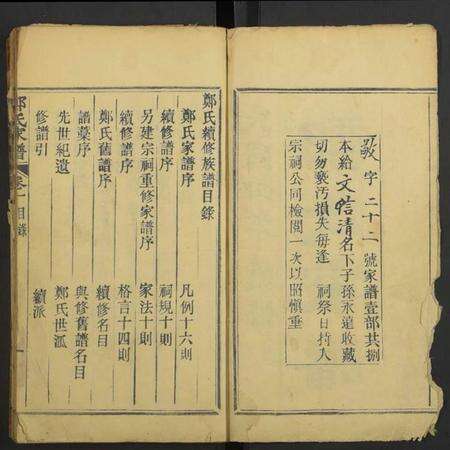 敬字二十二號家譜壹部共捌
本給文
清名下子孫永遠收藏
切勿褻汚損失每逢　祠祭日持入
宗祠公同檢閱一次以昭慎重
鄭氏續修族譜目錄
鄭氏家譜序　凡例十六則
續修譜序　祠規十則
另建宗祠重修家譜序　家法十則
續修譜序　格言十四則
鄭氏舊譜序　續修名目
譜藁序　與修舊譜名目
先世紀遺　鄭氏世派
修譜引　續派
鄭氏家譜　卷一　目錄